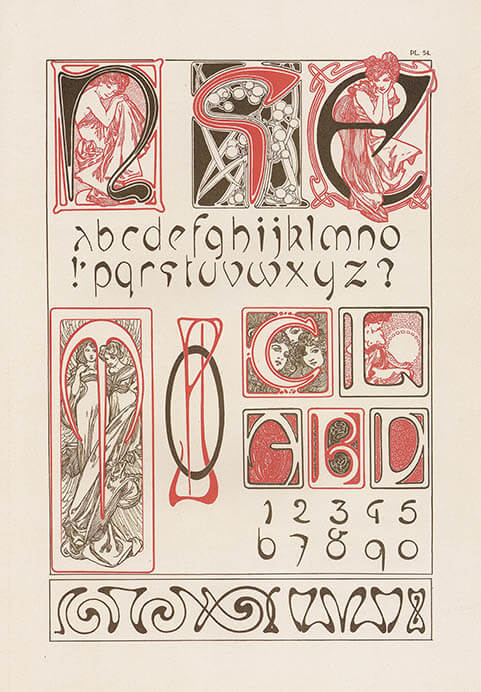 PL. 54.
n E
abcdefghijklmno
!'pqrstuvwxyz?
M C L
A B D
1 2 3 4 5
6 7 8 9 0